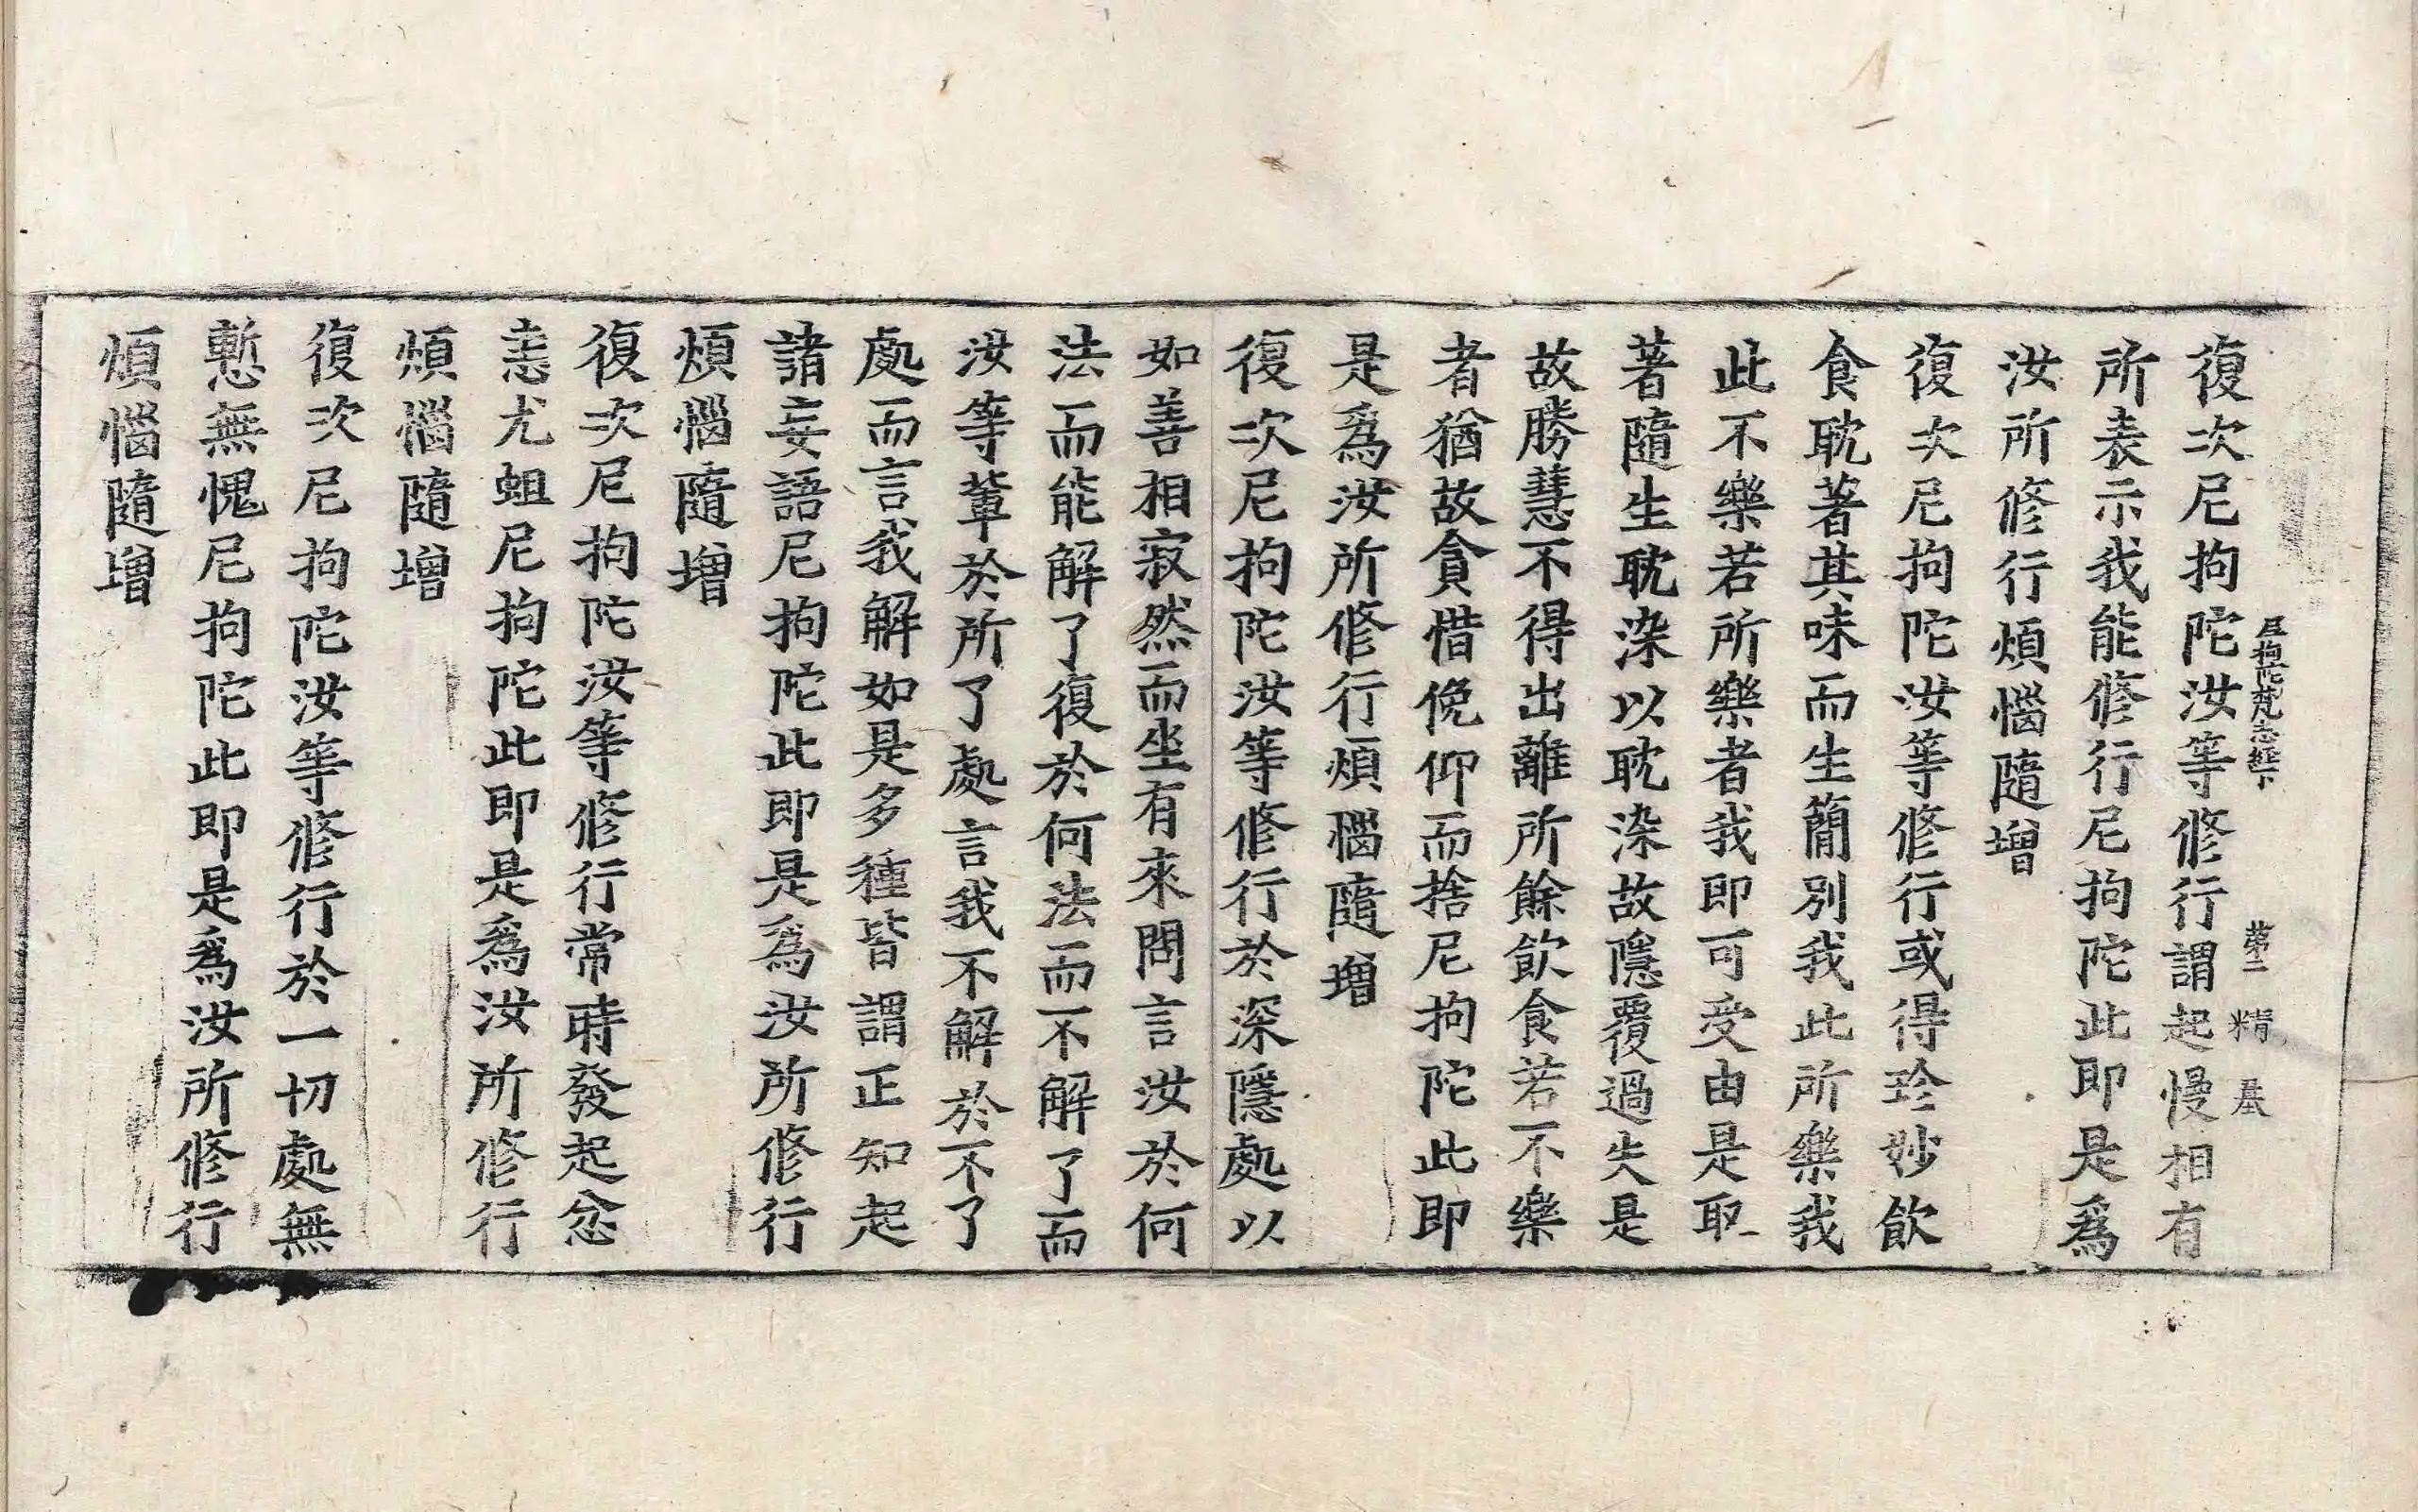 復次尼拘陀汝等修行謂起慢相有
所表示我能修行尼拘陀此即是爲
汝所修行煩惱隨增
復次尼拘陀汝等修行或得珍妙飲
食耽著其味而生簡別我此所樂我
此不樂若所樂者我即可受由是取
著隨生耽染以耽染故隱覆過失是
故勝慧不得出離所餘飲食若不樂
者猶故貪惜俛仰而捨尼拘陀此即
是爲汝所修行煩惱隨增
復次尼拘陀汝等修行於深隱處以
如善相寂然而坐有來問言汝於何
法而能解了復於何法而不解了而
汝等輩於所了處言我不解於不了
處而言我解如是多種皆謂正知起
諸妄語尼拘陀此即是爲汝所修行
煩惱隨增
復次尼拘陀汝等修行常時發起忿
恚尤蛆尼拘陀此即是爲汝所修行
煩惱隨增
復次尼拘陀汝等修行於一切處無
慙無愧尼拘陀此即是爲汝所修行
煩惱隨增
尼拘陀梵志經下 第二 精